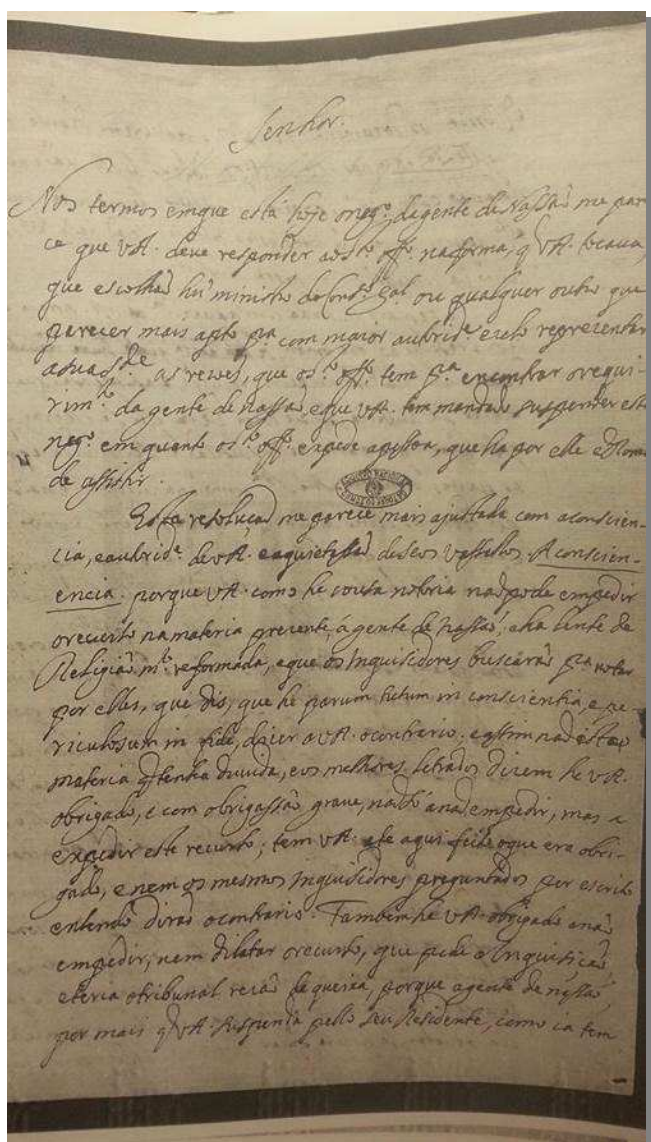 Senhor.
Nos termos emque está hoje oneg.º dagente da Nassaõ me pare
ce que VA. deve responder aos S.to off.º naforma, q̃ VA. tocava,
que escolhaõ hũ ministro do Cons.º g.al ou qualquer outro que
parecer mais apto p.ª com maior authorid.e e zelo reprezentar
asuas de as rezoés, que o S.to off.º tem p.ª encontrar orequi-
rim.to da gente de nassaõ, eque VA. tem mandado suspender este
neg.º em quanto o S.to off.º expede apessoa, que ha por elle e Roma
de assistir.
Esta resoluçaõ me parece mais ajustada com aconscien-
cia, eauthorid.e de VA. eaquietassaõ de seos vassallos. A conscien-
encia. porque VA. como he couza notoria naõ pode empedir
orecurso namateria prezente, á gente de nassaõ; eha lente de
Religiaõ m.to reformada, eque os Inquisidores buscaraõ p.ª votar
por elles, que dis, que he parum tutum in conscientia, e pe-
riculosum in fide, dizer a VA. ocontrario: eassim naõ está
materia q̃ tenha duvida, eos melhores letrados dizem he VA.
obrigado, e com obrigassaõ grave, naõ só anaõ empedir, mas a
expedir este recurso; tem VA. ate aqui feito oque era obri-
gado, e nem os mesmos Inquisidores preguntados por escrito
entendo diraõ ocontrario. Tambem he VA. obrigado anaõ
empedir, nem dilatar orecurso, que pede a Inquisiçaõ,
eteria otribunal rezaõ de queixa, porque agente de nassaõ,
por mais q̃ VA. suspenda pello seu Rezidente, como ia tem